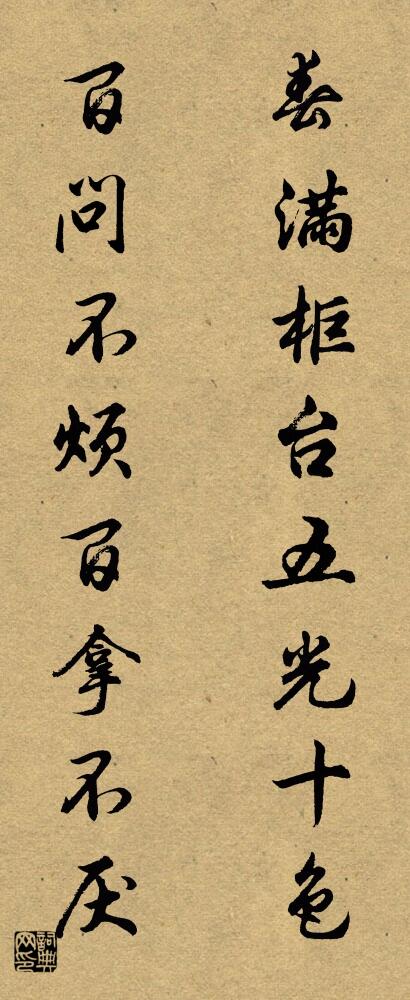 春满柜台五光十色
百问不烦百拿不厌
词典网印